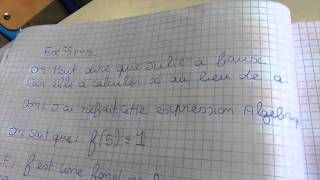 Exo 55 p 175
On peut dire que Julie a faux
Car elle a calculer x au lieu de a
Donc J'ai refait cette expression Algébr
On sait que: f(5) = 1
f est une fonc